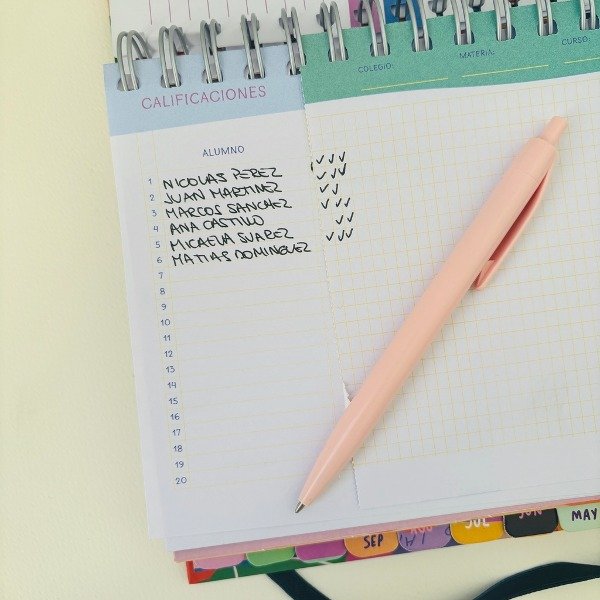 COLEGIO:
MATERIA:
CURSO:
CALIFICACIONES
ALUMNO
1 NICOLAS PEREZ ✓✓✓
2 JUAN MARTINEZ ✓✓✓
3 MARCOS SANCHEZ ✓✓
4 ANA CASTILLO ✓✓✓
5 MICAELA SUAREZ ✓✓
6 MATIAS DOMINGUEZ ✓✓✓
7
8
9
10
11
12
13
14
15
16
17
18
19
20
SEP
JUL
JUN
MAY